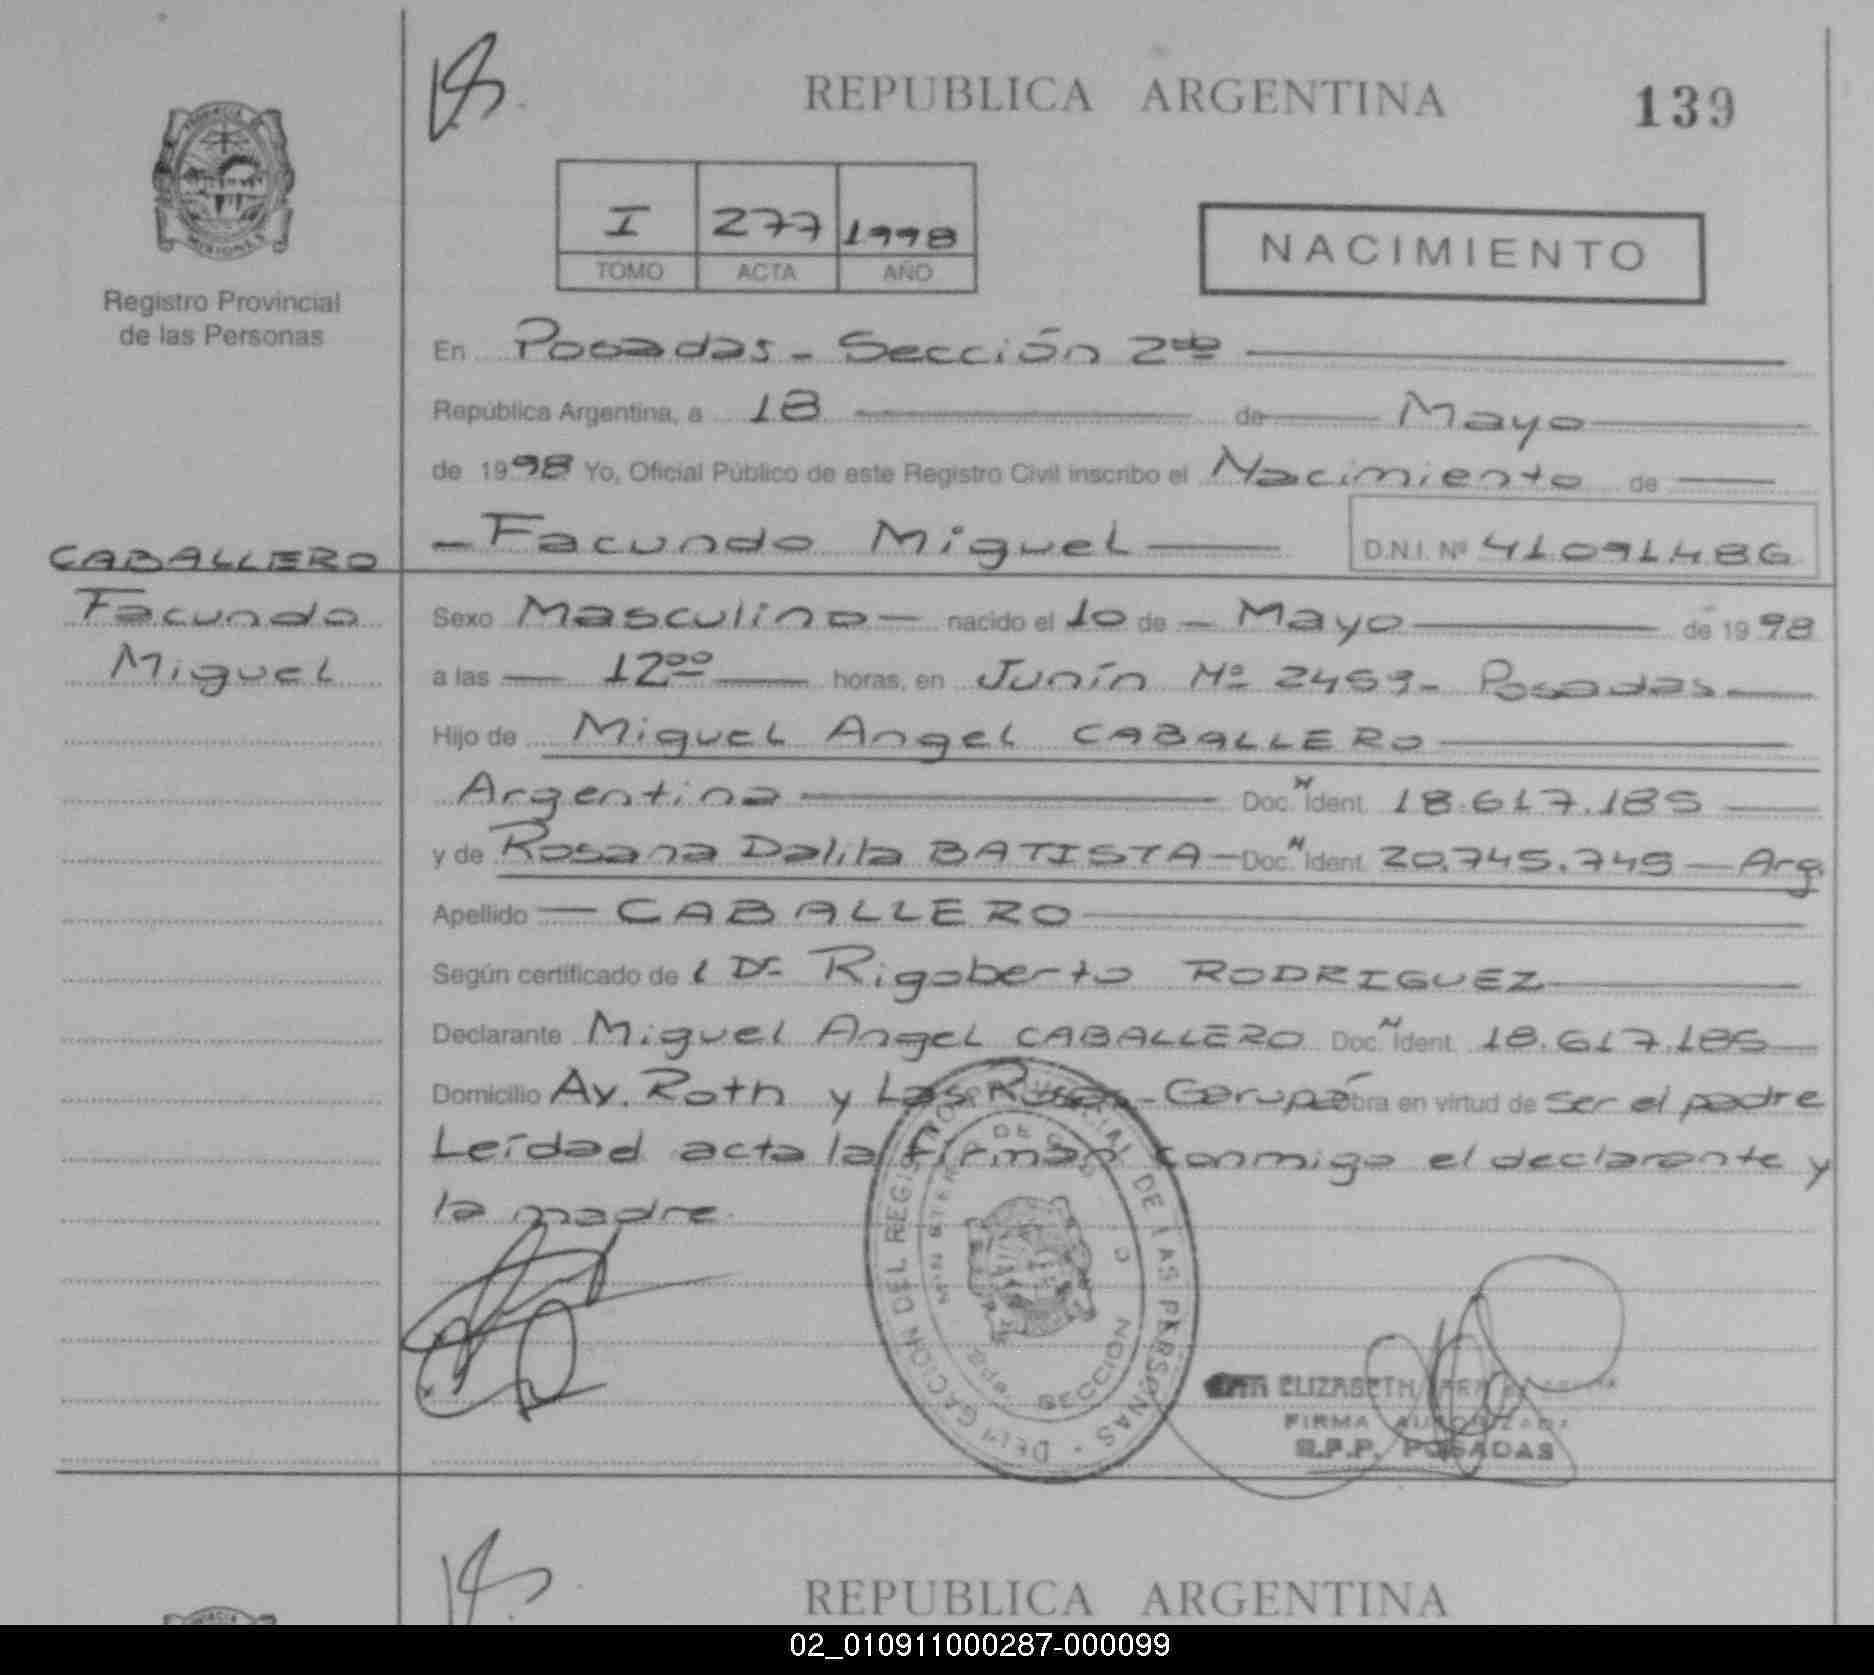 REPUBLICA ARGENTINA
139
I 277 1998
TOMO ACTA AÑO
NACIMIENTO
PROVINCIA
MISIONES
Registro Provincial
de las Personas
En Posadas - Sección 2da
República Argentina, a 18 de Mayo
de 1998 Yo, Oficial Público de este Registro Civil inscribo el Nacimiento de
Facundo Miguel D.N.I. Nº 41.091.486
CABALLERO
Facundo
Miguel
Sexo Masculino nacido el 10 de Mayo de 1998
a las 12 00 horas, en Junín Nº 2459 - Posadas
Hijo de Miguel Angel CABALLERO
Argentina Doc. N Ident. 18.617.185
y de Rosana Dalila BATISTA Doc. N Ident. 20.745.745 Arg.
Apellido CABALLERO
Según certificado de l Dr. Rigoberto RODRIGUEZ
Declarante Miguel Angel CABALLERO Doc. N Ident. 18.617.185
Domicilio Av. Roth y Las Rosas - Garupá obra en virtud de ser el padre
Leídad acta la firman conmigo el declarante y
la madre
DELEGACION DEL REGISTRO PROVINCIAL DE LAS PERSONAS
SECCION
ELIZABETH
FIRMA AUTORIZADA
R.P.P. POSADAS
REPUBLICA ARGENTINA
02_010911000287-000099